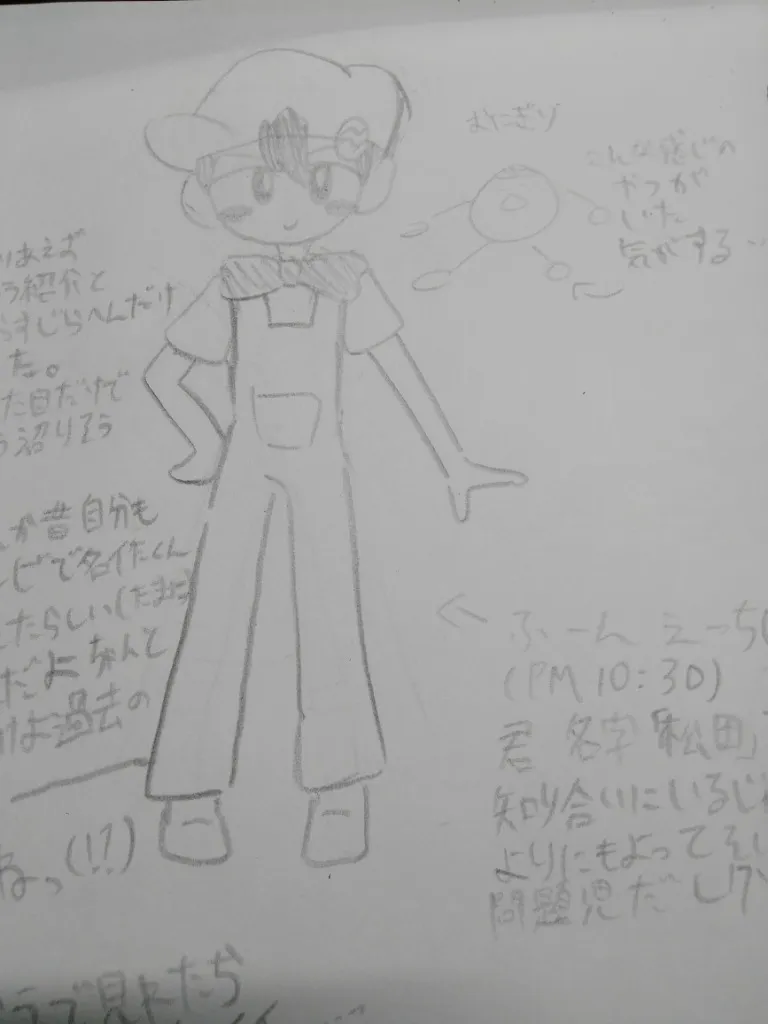 おにぎり
こんな感じの
やつが
いた
気がする…
りあえず
紹介と
すじらへんだけ
た。
た目だけで
沼りそう
昔自分も
ビで名作くん
たらしい(たまに)
だよなんて
は過去の
ねっ(!?)
ふーん えっち
(PM 10:30)
君 名字「松田」
知り合いにいるじ
よりにもよって
問題児だし
ラブで見たら